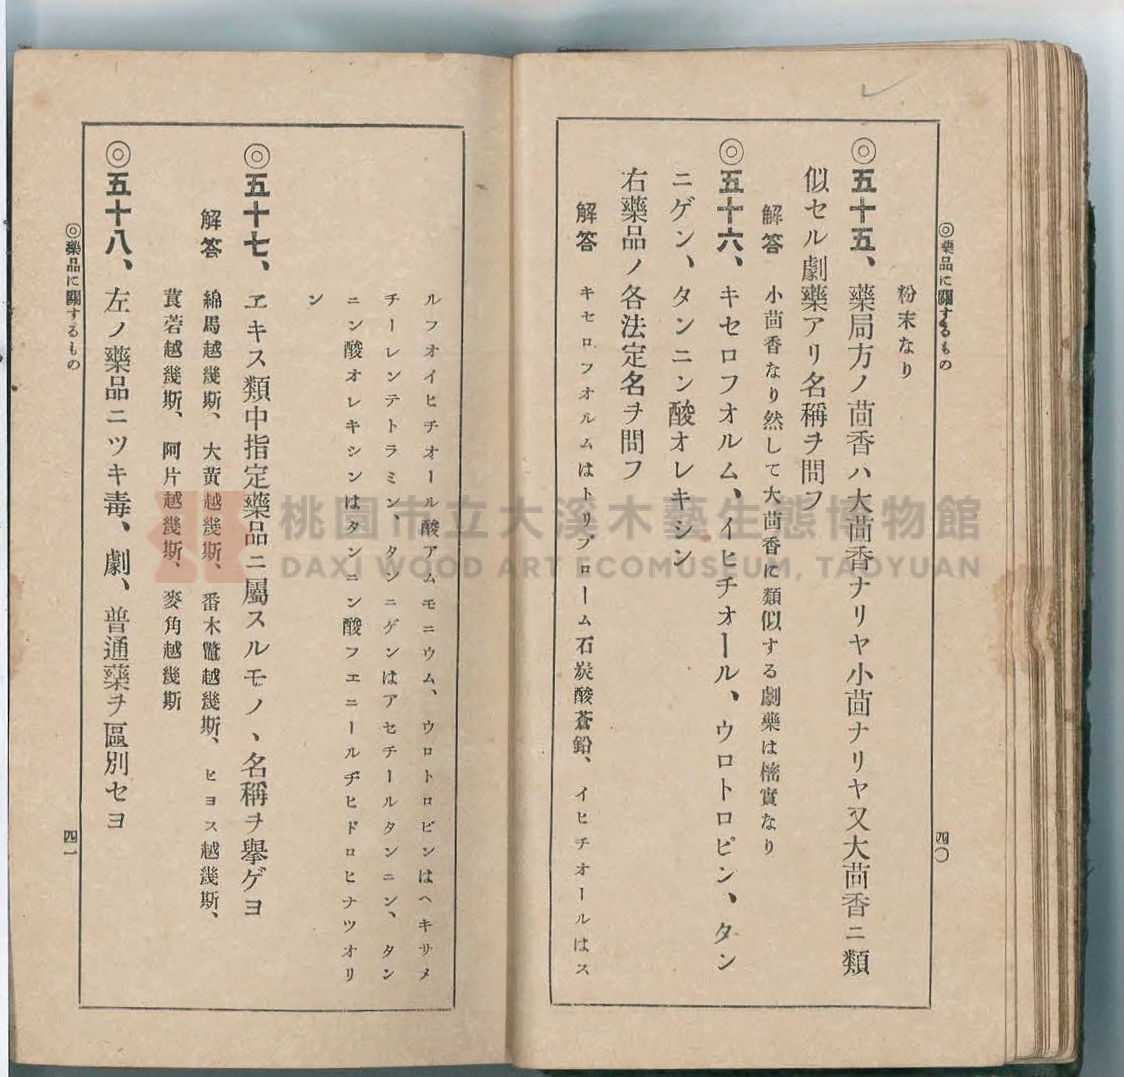 ◎藥品に關するもの
四〇
粉末なり
◎五十五、藥局方ノ茴香ハ大茴香ナリヤ小茴ナリヤ又大茴香ニ類
似セル劇藥アリ名稱ヲ問フ
解答 小茴香なり然して大茴香に類似する劇藥は樒實なり
◎五十六、キセロフオルム、イヒチオール、ウロトロピン、タン
ニゲン、タンニン酸オレキシン
右藥品ノ各法定名ヲ問フ
解答 キセロフオルムはトリブローム石炭酸蒼鉛、イヒチオールはス
ルフオイヒチオール酸アムモニウム、ウロトロピンはヘキサメ
チーレンテトラミン、タンニゲンはアセチールタンニン、タン
ニン酸オレキシンはタンニン酸フエニールヂヒドロヒナツオリ
ン
◎五十七、ヱキス類中指定藥品ニ屬スルモノヽ名稱ヲ擧ゲヨ
解答 綿馬越幾斯、大黃越幾斯、番木鼈越幾斯、ヒヨス越幾斯、
莨菪越幾斯、阿片越幾斯、麥角越幾斯
◎五十八、左ノ藥品ニツキ毒、劇、普通藥ヲ區別セヨ
◎藥品に關するもの
四一
桃園市立大溪木藝生態博物館
DAXI WOOD ART ECOMUSEUM, TAOYUAN